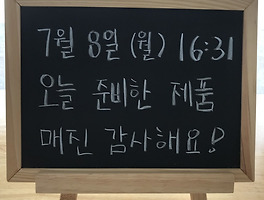 7월 8일 (월) 16:31
오늘 준비한 제품
매진 감사해요!